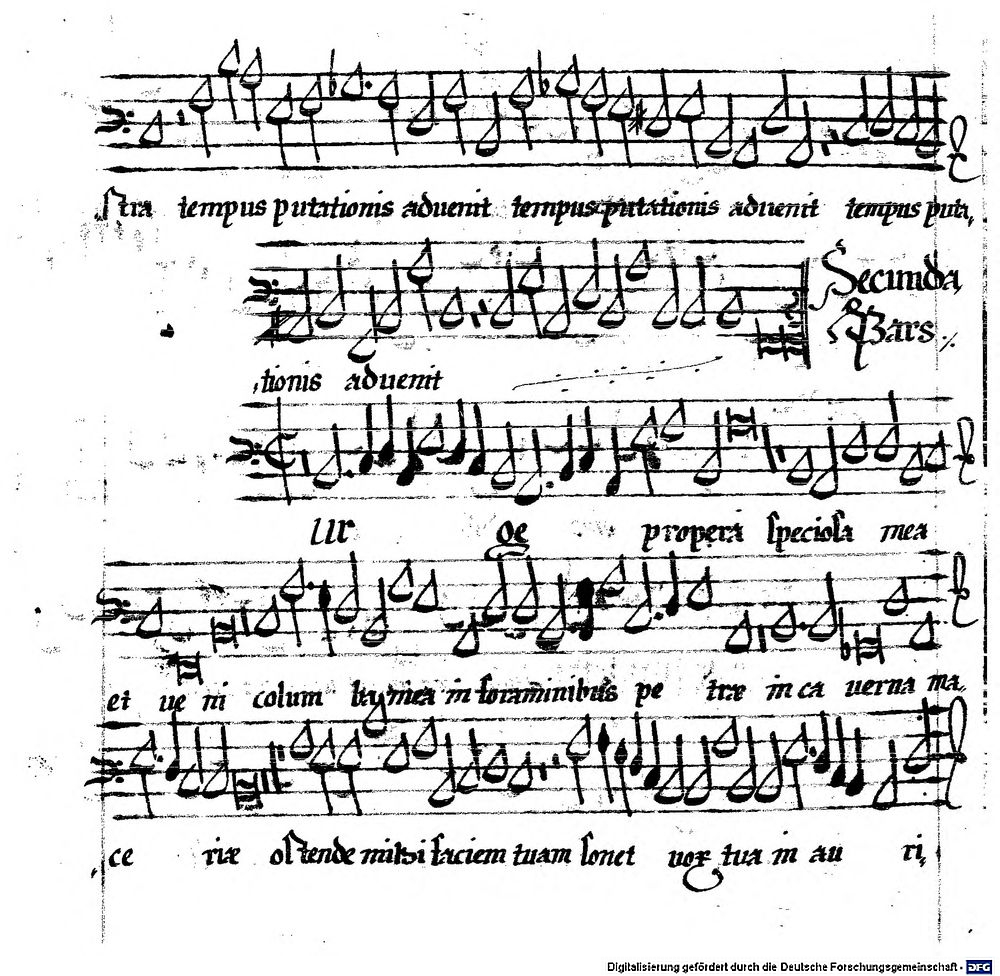 stra tempus putationis aduenit tempus putationis aduenit tempus puta,
Secunda
Pars
tionis aduenit
UR ge propera speciosa mea
et ue ni colum ba mea in foraminibus pe træ in ca uerna ma,
ce riæ ostende mihi faciem tuam sonet uox tua in au ri,
Digitalisierung gefördert durch die Deutsche Forschungsgemeinschaft - DFG